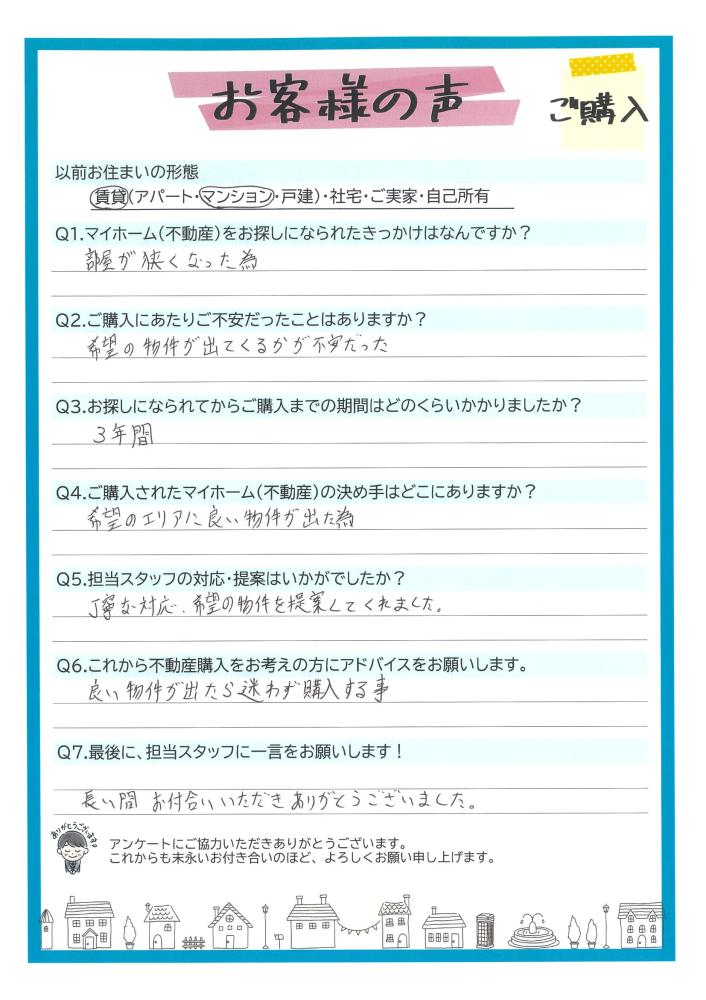 お客様の声
ご購入
以前お住まいの形態
賃貸(アパート・マンション・戸建)・社宅・ご実家・自己所有
Q1.マイホーム(不動産)をお探しになられたきっかけはなんですか?
部屋が狭くなった為
Q2.ご購入にあたりご不安だったことはありますか?
希望の物件が出てくるかが不安だった
Q3.お探しになられてからご購入までの期間はどのくらいかかりましたか?
3年間
Q4.ご購入されたマイホーム(不動産)の決め手はどこにありますか?
希望のエリアに良い物件が出た為
Q5.担当スタッフの対応・提案はいかがでしたか?
丁寧な対応、希望の物件を提案してくれました。
Q6.これから不動産購入をお考えの方にアドバイスをお願いします。
良い物件が出たら迷わず購入する事
Q7.最後に、担当スタッフに一言をお願いします!
長い間 お付合いいただきありがとうございました。
ありがとうございます
アンケートにご協力いただきありがとうございます。
これからも末永いお付き合いのほど、よろしくお願い申し上げます。